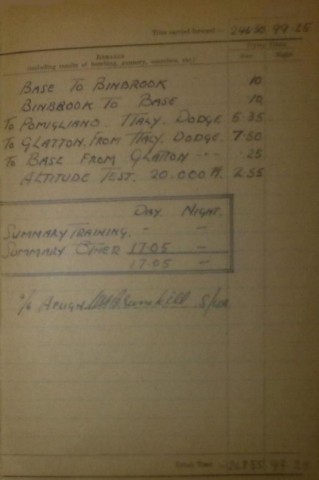 Time carried forward :— 246.50 99.25
REMARKS
(including results of bombing, gunnery, exercises, etc.)
Flying Times
Day Night
BASE TO BINBROOK 10
BINBROOK TO BASE 10
TO POMIGLIANO ITALY. DODGE 6.35
TO GLATTON FROM ITALY. DODGE. 7.50
TO BASE FROM GLATTON --- .25
ALTITUDE TEST. 20.000 ft. 2.55
DAY. NIGHT.
SUMMARY TRAINING. - -
SUMMARY OTHER 17.05 -
17.05 -
Total Time 99.25